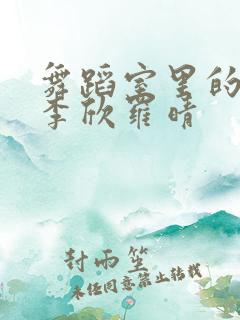 舞蹈室里的
李欣罗晴
封雨笙
未经同意禁止转载